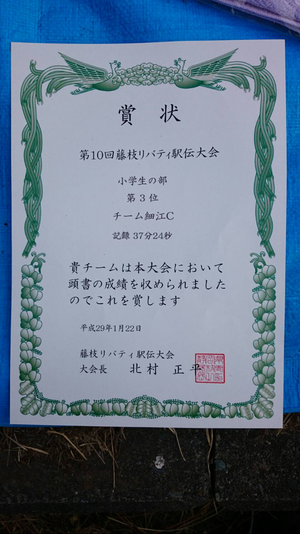 賞状
第10回藤枝リバティ駅伝大会
小学生の部
第3位
チーム細江C
記録 37分24秒
貴チームは本大会において
頭書の成績を収められました
のでこれを賞します
平成29年1月22日
藤枝リバティ駅伝大会
大会長 北村 正平